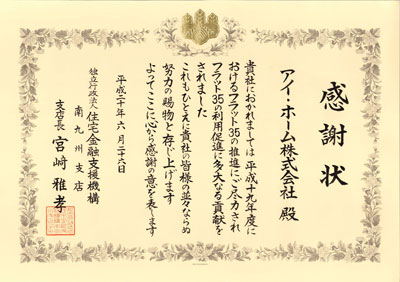 感謝状
アイ・ホーム株式会社 殿
貴社におかれましては平成十九年度に
おけるフラット35の推進にご尽力され
フラット35の利用促進に多大なる貢献を
されました
これもひとえに貴社の皆様の並々ならぬ
努力の賜物と存じ上げます
よってここに心から感謝の意を表します
平成二十年六月二十六日
独立行政法人住宅金融支援機構
南九州支店
支店長 宮﨑雅孝